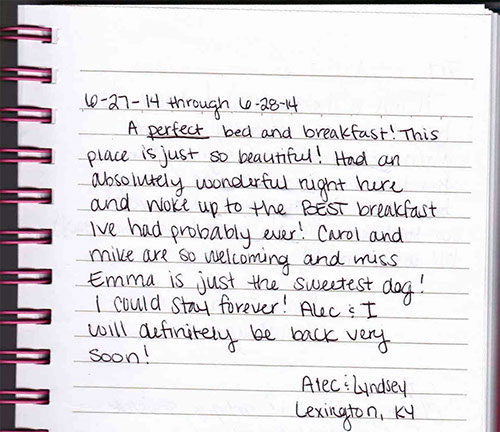 6-27-14 through 6-28-14
A perfect bed and breakfast! This
place is just so beautiful! Had an
absolutely wonderful night here
and woke up to the BEST breakfast
Ive had probably ever! Carol and
mike are so welcoming and miss
Emma is just the sweetest dog!
I could stay forever! Alec & I
will definitely be back very
soon!
Alec & Lyndsey
Lexington, KY